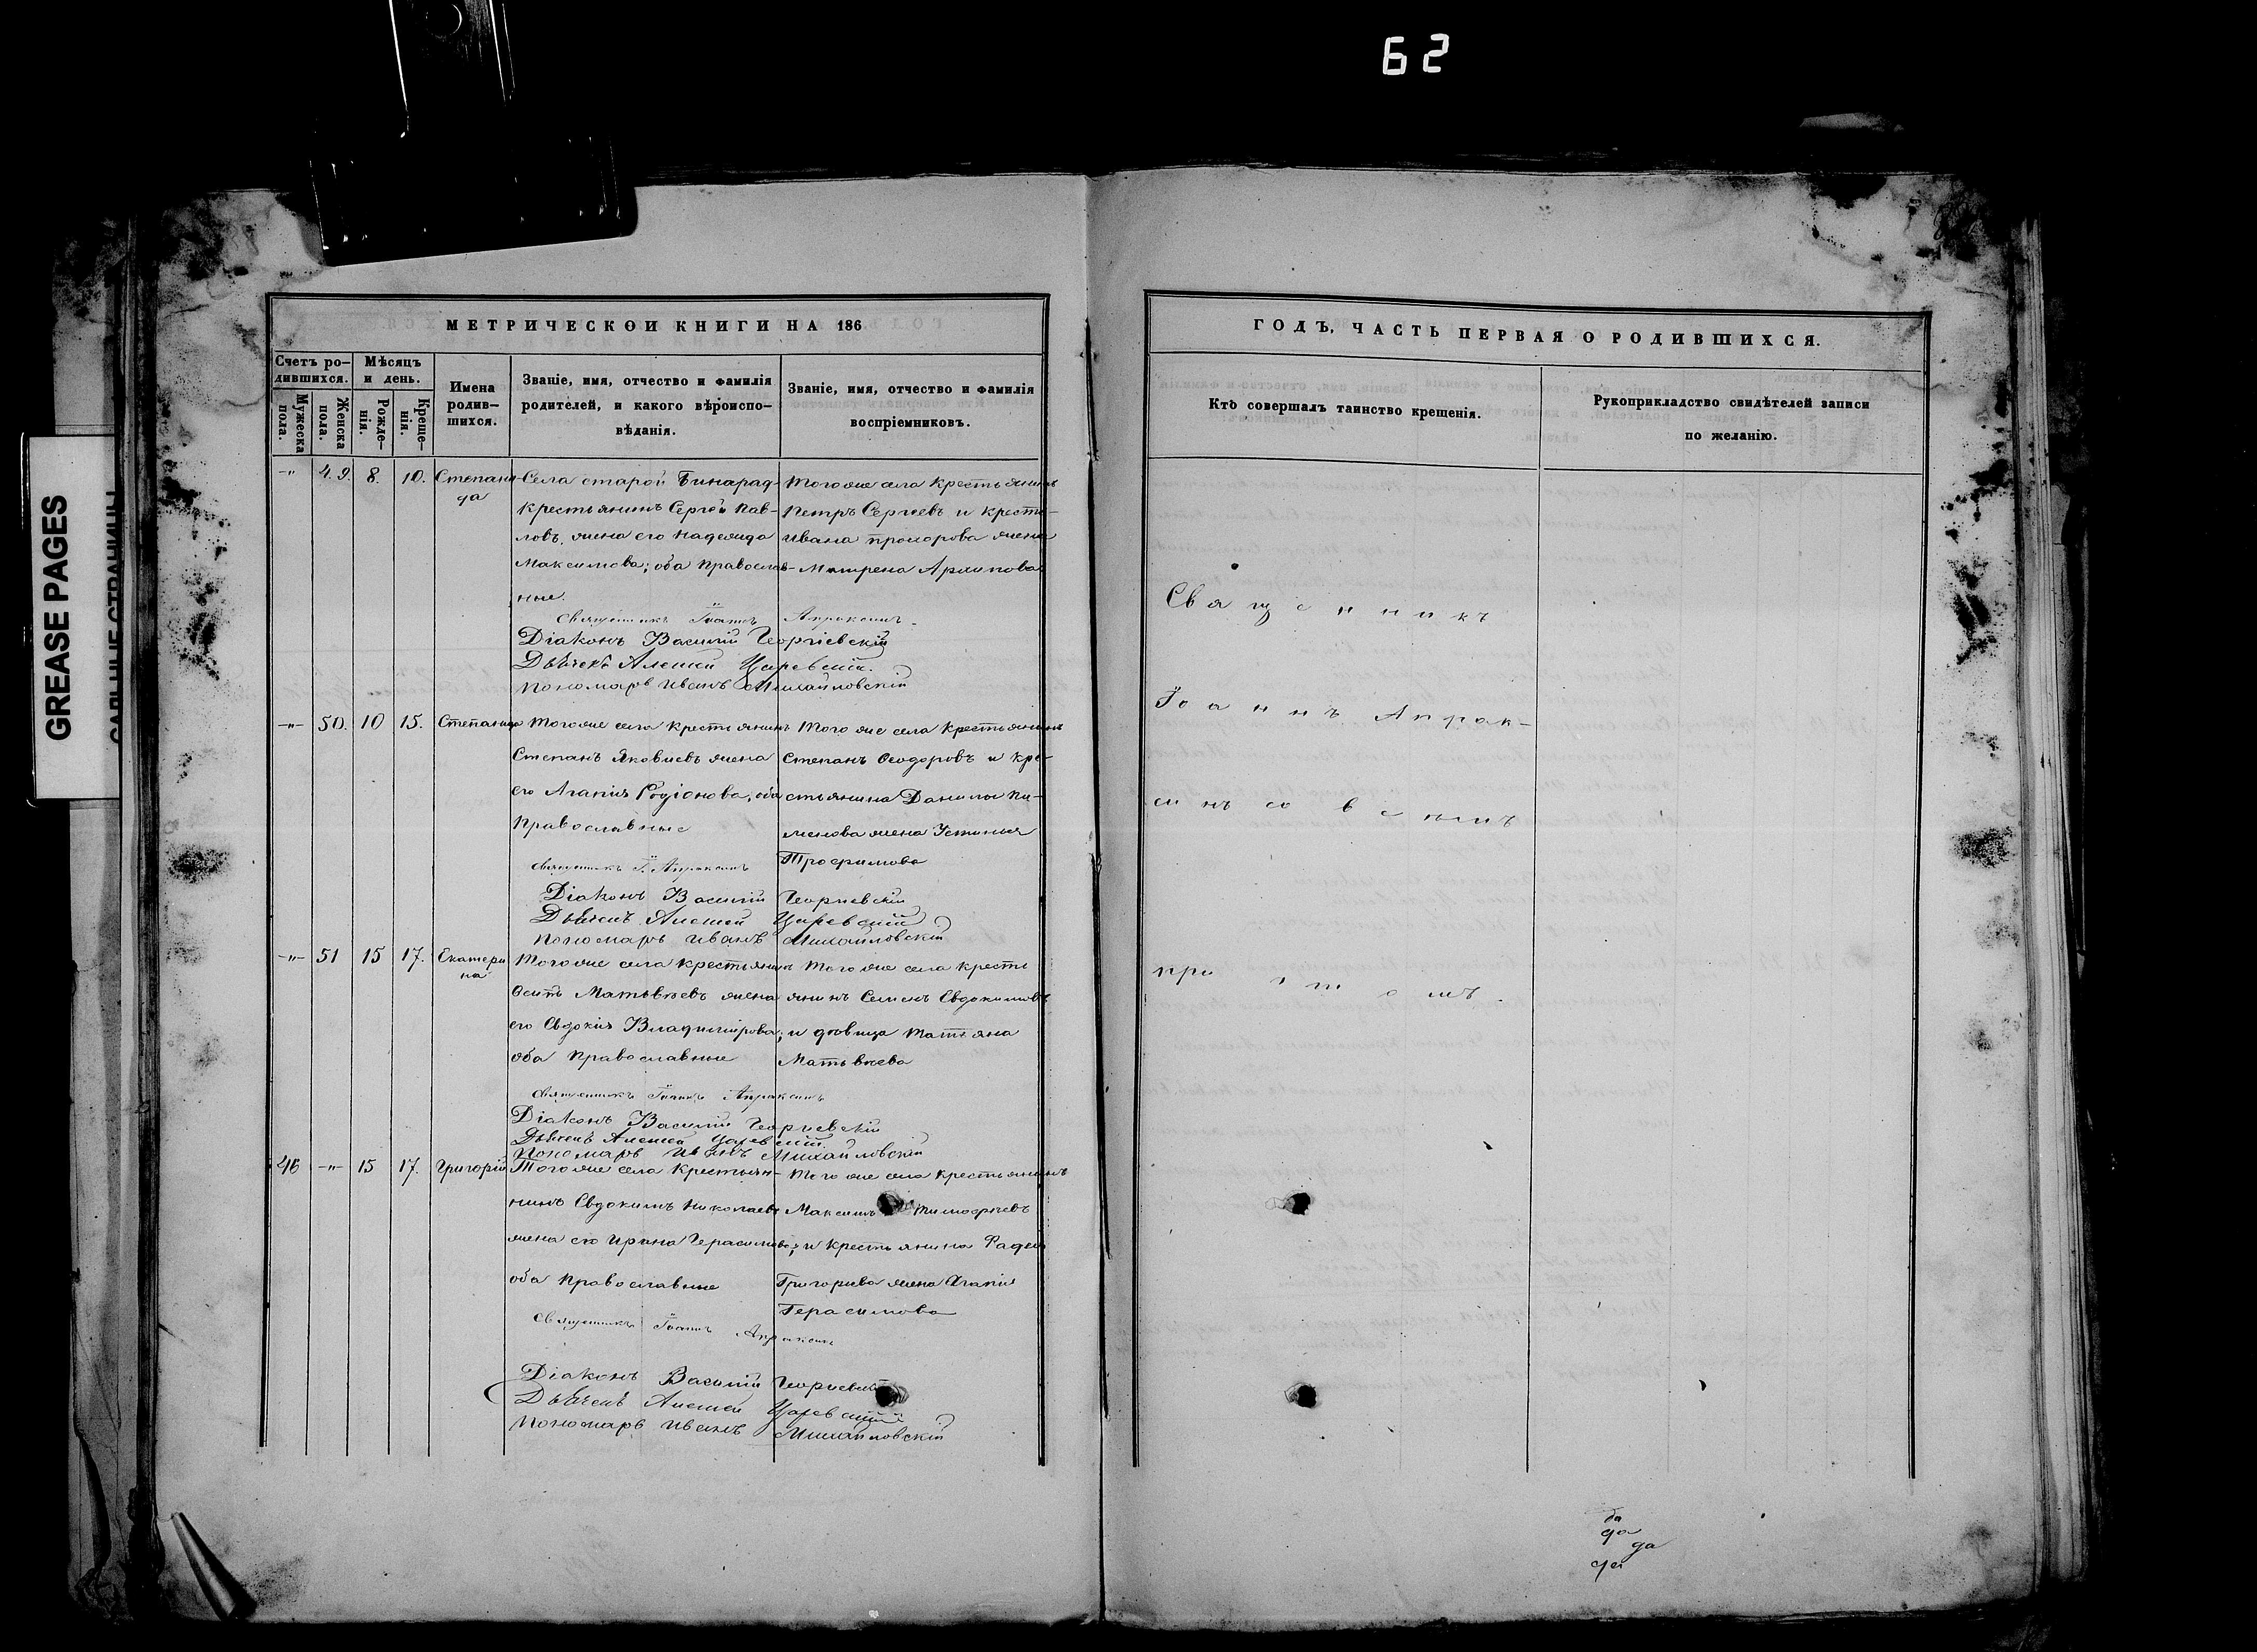 62
GREASE PAGES
МЕТРИЧЕСКОИ КНИГИ НА 186
Счетъ ро-
дившихся.
Мѣсяцъ
и день.
Мужеска
пола.
Женска
пола.
Рожде-
нія.
Креще-
нія.
Имена
родив-
шихся.
Званіе, имя, отчество и фамилія
родителей, и какого вѣроиспо-
вѣданія.
Званіе, имя, отчество и фамилія
воспріемниковъ.
-"- 49. 8. 10. Степани-
да
Села старой Бинарад-
крестьянинъ Сергѣй Пав-
ловъ, жена его Надежда
Максимова; оба Православ-
ные.
Тогоже села крестьянинъ
Петръ Сергѣевъ и крестья-
Ивана Прохорова жена
Матрена Архипова
Священникъ Іоаннъ Апраксинъ
Діаконъ Василій Георгіевскій
Дьячекъ Алексей Царевскій.
Пономарь Иванъ Михайловскій
-"- 50. 10 15. Степанида
Тогоже села крестьянинъ
Степанъ Яковлевъ жена
его Агапія Родіонова, оба
Православные
Того же села крестьянинъ
Степанъ Ѳеодоровъ и кре-
стьянина Данилы Пи-
менова жена Устинья
Трофимова
Священникъ І. Апраксинъ
Діаконъ Василій Георгіевскій
Дьячекъ Алексей Царевскій
Пономарь Иванъ Михайловскій
-"- 51 15 17. Екатери
на
Тогоже села крестьянинъ
Осипъ Матвѣевъ жена
его Евдокія Владимірова;
оба Православные
Того же села кресть
янинъ Семенъ Евдокимовъ
и дѣвица Татьяна
Матвѣева
Священникъ Іоаннъ Апраксинъ
Діаконъ Василій Георгіевскій
Дьячекъ Алексей Царевскій.
Пономарь Иванъ Михайловскій
46 -"- 15 17. Григорій
Тогоже села Крестьян-
нинъ Евдокимъ Николаевъ
жена его Ирина Герасимова;
оба Православные
Того же села крестьянинъ
Максимъ Тимофѣевъ
и крестьянина Фадея
Григорьева жена Агапія
Герасимова
Священникъ Іоаннъ Апраксинъ
Діаконъ Василій Георгіевскій
Дьячекъ Алексей Царевскій
Пономарь Иванъ Михайловскій
ГОДЪ, ЧАСТЬ ПЕРВАЯ О РОДИВШИХСЯ.
Кто совершалъ таинство крещенія.
Рукоприкладство свидѣтелей записи
по желанію.
Священникъ
Іоаннъ Апрак-
синъ со всемъ
притомъ.
да
да